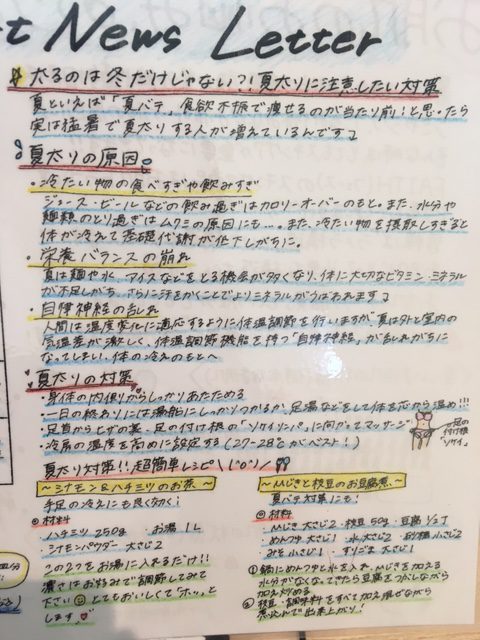 t News Letter
太るのは冬だけじゃない?!夏太りに注意したい対策
夏といえば「夏バテ」食欲不振で痩せるのが当たり前!と思ったら
実は猛暑で夏太りする人が増えているんです↴
夏太りの原因
・冷たい物の食べすぎや飲みすぎ
ジュース・ビールなどの飲み過ぎはカロリーオーバーのもと。また、水分や
麺類のとり過ぎはムクミの原因にも…。また、冷たい物を摂取しすぎると
体が冷えて基礎代謝が低下しがちに。
・栄養バランスの崩れ
夏は麺や氷、アイスなどをとる機会が多くなり、体に大切なビタミン・ミネラル
が不足しがち。さらに汗をかくことでよりミネラルがうばわれます↴
・自律神経の乱れ
人間は温度変化に適応するように体温調節を行いますが、夏は外と室内の
気温差が激しく、体温調節機能を持つ"自律神経"が乱れがちに
なってしまい、体の冷えのもとへ
夏太りの対策
・身体の内側からしっかりあたためる
・一日の終わりには湯船にしっかりつかるか、足湯などをして体を芯から温め!!!
・足首からヒザの裏、足の付け根の「ソケイリンパ」に向かってマッサージ
・冷房の温度を高めに設定する(27-28℃がベスト!)
足の
付け根
「ソケイ」
夏太り対策!!超簡単レシピ\(^o^)/
~シナモン&ハチミツのお茶~
手足の冷えにも良く効く!
◎材料
・ハチミツ 250g ・お湯 1L
・シナモンパウダー 大さじ2
この2つをお湯に入れるだけ!!
濃さはお好みで調節してみて
下さい とてもおいしくて「ホッ」と
します。
~ひじきと枝豆のお豆腐煮~
夏バテ対策にも!
◎材料
・ひじき 大さじ2・枝豆50g・豆腐1/2丁
・めんつゆ 大さじ1 ・水 大さじ2・砂糖小さじ2
・みそ 小さじ1 ・すりごま 大さじ1
①鍋にめんつゆと水を入れ、ひじきを加える
水分がなくなってきたら豆腐をつぶしながら
加え炒める
②枝豆・調味料をすべて加え混ぜながら
煮込んで出来上がり!